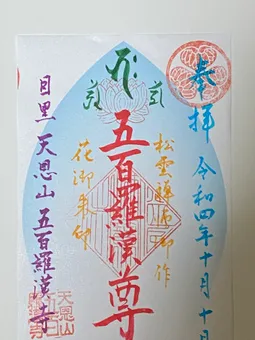 奉拝 令和四年十月十日
松雲禅師御作
五百羅漢尊
花御朱印
目黒 天恩山 五百羅漢寺
天恩山